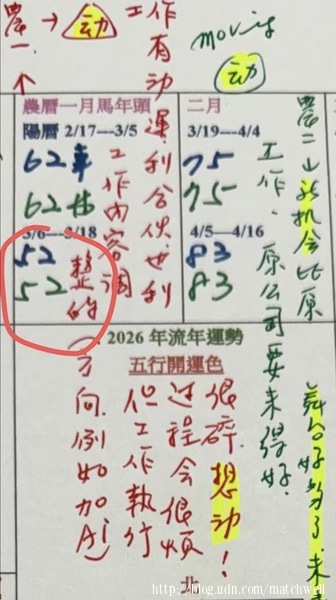 農一 → 动
工作有动
moving
动
農曆一月馬年頭
陽曆 2/17---3/5
62車
62牛
3/6---3/18
52
52
整的
工作內容調
運利合伙也利
二月
3/19---4/4
75
75
4/5---4/16
83
83
工作，原公司要来得好.
農二山新机会比原
舞台好
2026 年流年運勢
五行開運色
很碎想动！
过程会很煩
但工作執行
(方向.例如加Ai)
北
http://blog.udn.com/matchwell